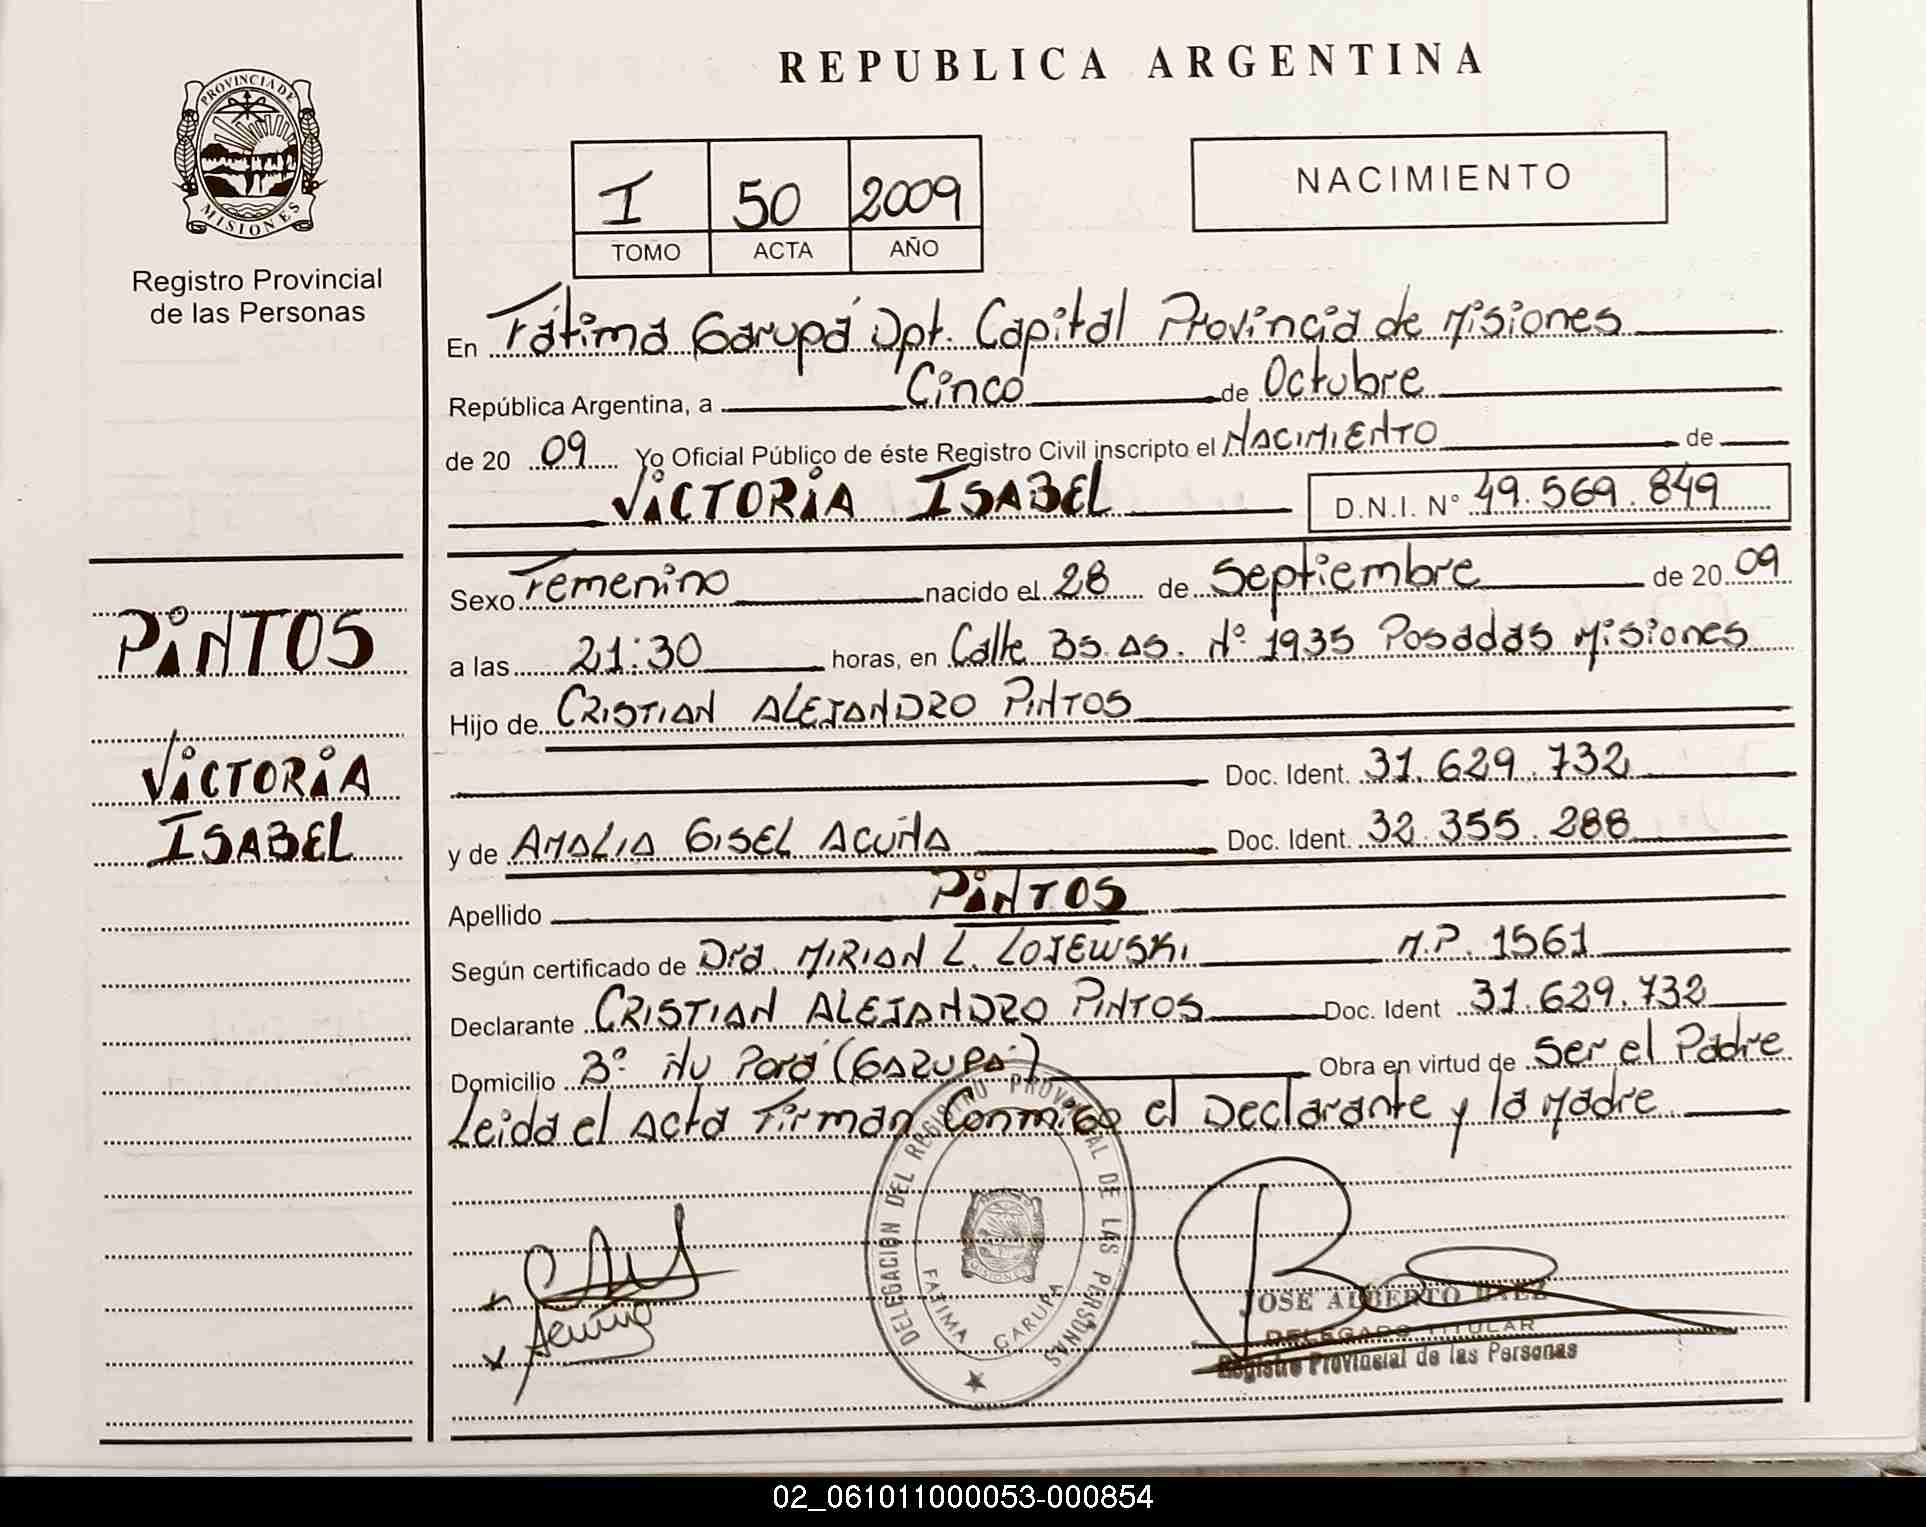 REPUBLICA ARGENTINA
PROVINCIA DE MISIONES
Registro Provincial
de las Personas
I 50 2009
TOMO ACTA AÑO
NACIMIENTO
En Fátima Garupá Dpt. Capital Provincia de Misiones
República Argentina, a Cinco de Octubre
de 20 09 Yo Oficial Público de éste Registro Civil inscripto el NACIMIENTO de
VICTORIA ISABEL D.N.I. N° 49.569.849
PINTOS
VICTORIA
ISABEL
Sexo Femenino nacido el 28 de Septiembre de 20 09
a las 21:30 horas, en Calle Bs. As. N° 1935 Posadas Misiones
Hijo de CRISTIAN ALEJANDRO PINTOS
Doc. Ident. 31.629.732
y de AMALIA GISEL ACUÑA Doc. Ident. 32.355.288
Apellido PINTOS
Según certificado de Dra. MIRIAN L. LOJEWSKI M.P. 1561
Declarante CRISTIAN ALEJANDRO PINTOS Doc. Ident 31.629.732
Domicilio B° Ñu Porá (GARUPÁ) Obra en virtud de Ser el Padre
Leida el Acta Firman Conmigo el Declarante y la Madre
DELEGACION DEL REGISTRO PROVINCIAL DE LAS PERSONAS
FATIMA GARUPA
MISIONES
Acuña
JOSE ALBERTO BAEZ
DELEGADO TITULAR
Registro Provincial de las Personas
02_061011000053-000854